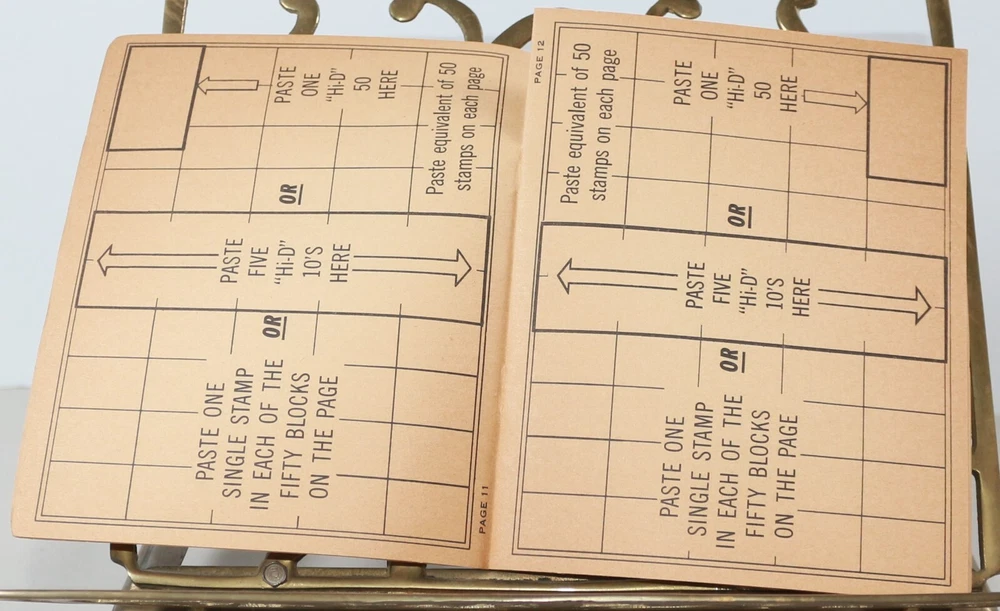 PASTE
ONE
"Hi-D"
50
HERE
Paste equivalent of 50
stamps on each page
OR
PASTE
FIVE
"Hi-D"
10'S
HERE
OR
PASTE ONE
SINGLE STAMP
IN EACH OF THE
FIFTY BLOCKS
ON THE PAGE
PAGE 11
PAGE 12
Paste equivalent of 50
stamps on each page
PASTE
ONE
"Hi-D"
50
HERE
OR
PASTE
FIVE
"Hi-D"
10'S
HERE
OR
PASTE ONE
SINGLE STAMP
IN EACH OF THE
FIFTY BLOCKS
ON THE PAGE